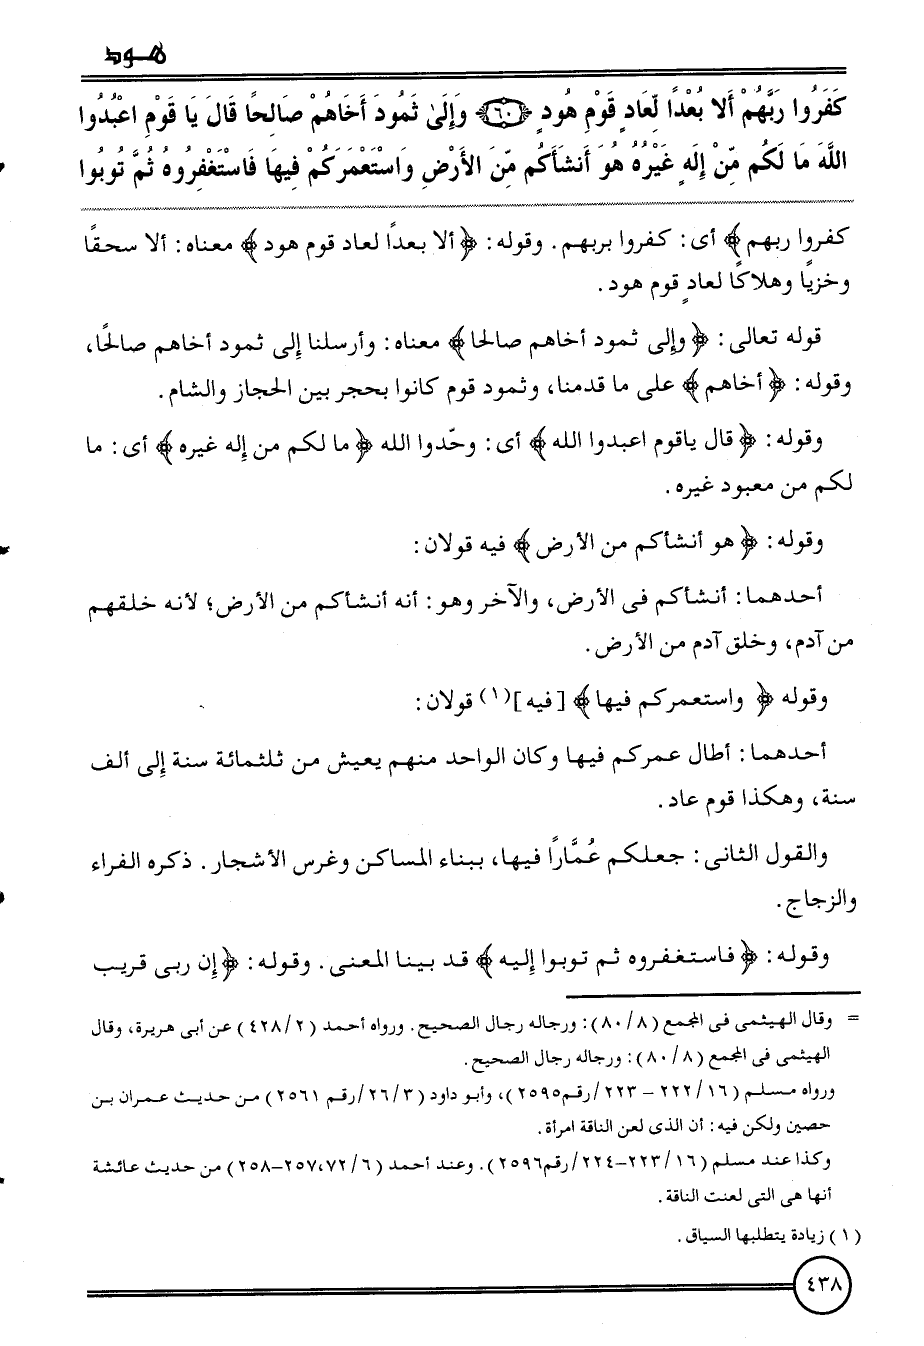 هود
كَفَرُوا رَبَّهُمْ أَلا بُعْدًا لِّعَادٍ قَوْمِ هُودٍ ﴿٦٠﴾ وَإِلَىٰ ثَمُودَ أَخَاهُمْ صَالِحًا قَالَ يَا قَوْمِ اعْبُدُوا
اللَّهَ مَا لَكُم مِّنْ إِلَهٍ غَيْرُهُ هُوَ أَنشَأَكُم مِّنَ الأَرْضِ وَاسْتَعْمَرَكُمْ فِيهَا فَاسْتَغْفِرُوهُ ثُمَّ تُوبُوا
كفروا ربهم ﴾ أى: كفروا بربهم. وقوله: ﴿ ألا بعداً لعاد قوم هود ﴾ معناه: ألا سحقًا
وخزيًا وهلاكًا لعادٍ قوم هود.
قوله تعالى: ﴿ وإلى ثمود أخاهم صالحا ﴾ معناه: وأرسلنا إلى ثمود أخاهم صالحًا،
وقوله: ﴿ أخاهم ﴾ على ما قدمنا، وثمود قوم كانوا بحجر بين الحجاز والشام.
وقوله: ﴿ قال ياقوم اعبدوا الله ﴾ أى: وحّدوا الله ﴿ ما لكم من إله غيره ﴾ أى: ما
لكم من معبود غيره.
وقوله: ﴿ هو أنشأكم من الأرض ﴾ فيه قولان:
أحدهما: أنشأكم فى الأرض، والآخر وهو: أنه أنشأكم من الأرض؛ لأنه خلقهم
من آدم، وخلق آدم من الأرض.
وقوله ﴿ واستعمركم فيها ﴾ [فيه](١) قولان:
أحدهما: أطال عمركم فيها وكان الواحد منهم يعيش من ثلثمائة سنة إلى ألف
سنة، وهكذا قوم عاد.
والقول الثانى: جعلكم عُمَّارًا فيها، ببناء المساكن وغرس الأشجار. ذكره الفراء
والزجاج.
وقوله: ﴿ فاستغفروه ثم توبوا إليه ﴾ قد بينا المعنى. وقوله: ﴿ إن ربى قريب
= وقال الهيثمى فى المجمع (٨/ ٨٠): ورجاله رجال الصحيح. ورواه أحمد (٢/ ٤٢٨) عن أبى هريرة، وقال
الهيثمى فى المجمع (٨/ ٨٠): ورجاله رجال الصحيح.
ورواه مسلم (١٦/ ٢٢٢ – ٢٢٣ /رقم٢٥٩٥)، وأبو داود (٣/ ٢٦ /رقم ٢٥٦١) من حديث عمران بن
حصين ولكن فيه: أن الذى لعن الناقة امرأة.
وكذا عند مسلم (١٦/ ٢٢٣–٢٢٤ /رقم٢٥٩٦). وعند أحمد (٦/ ٧٢،٢٥٧–٢٥٨) من حديث عائشة
أنها هى التى لعنت الناقة.
(١) زيادة يتطلبها السياق.
٤٣٨